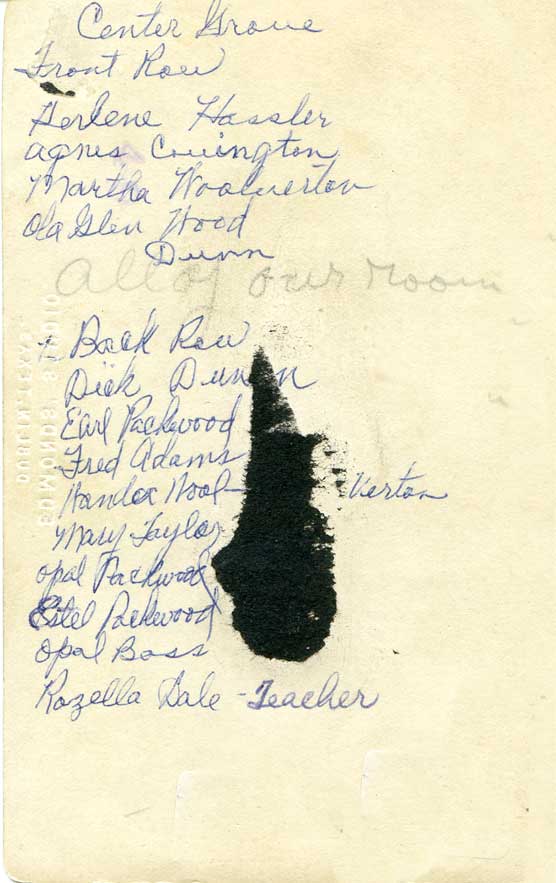 Center Grove
Front Row
Herlene Hassler
Agnes Covington
Martha Woolverton
Ola Glen Wood
Dunn
All of our room
Back Row
Dick Dunn
Earl Packwood
Fred Adams
Wool- Verton
Mary Taylor
Opal Packwood
Estel Packwood
Opal Bass
Rozella Gale - Teacher